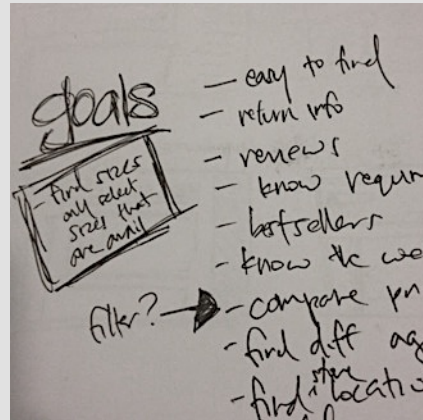 goals
- find sizes
only select
sizes that
are avail
filter?
- easy to find
- return info
- reviews
- know
- bestsellers
- know the
- compare
- find diff
store
- find location